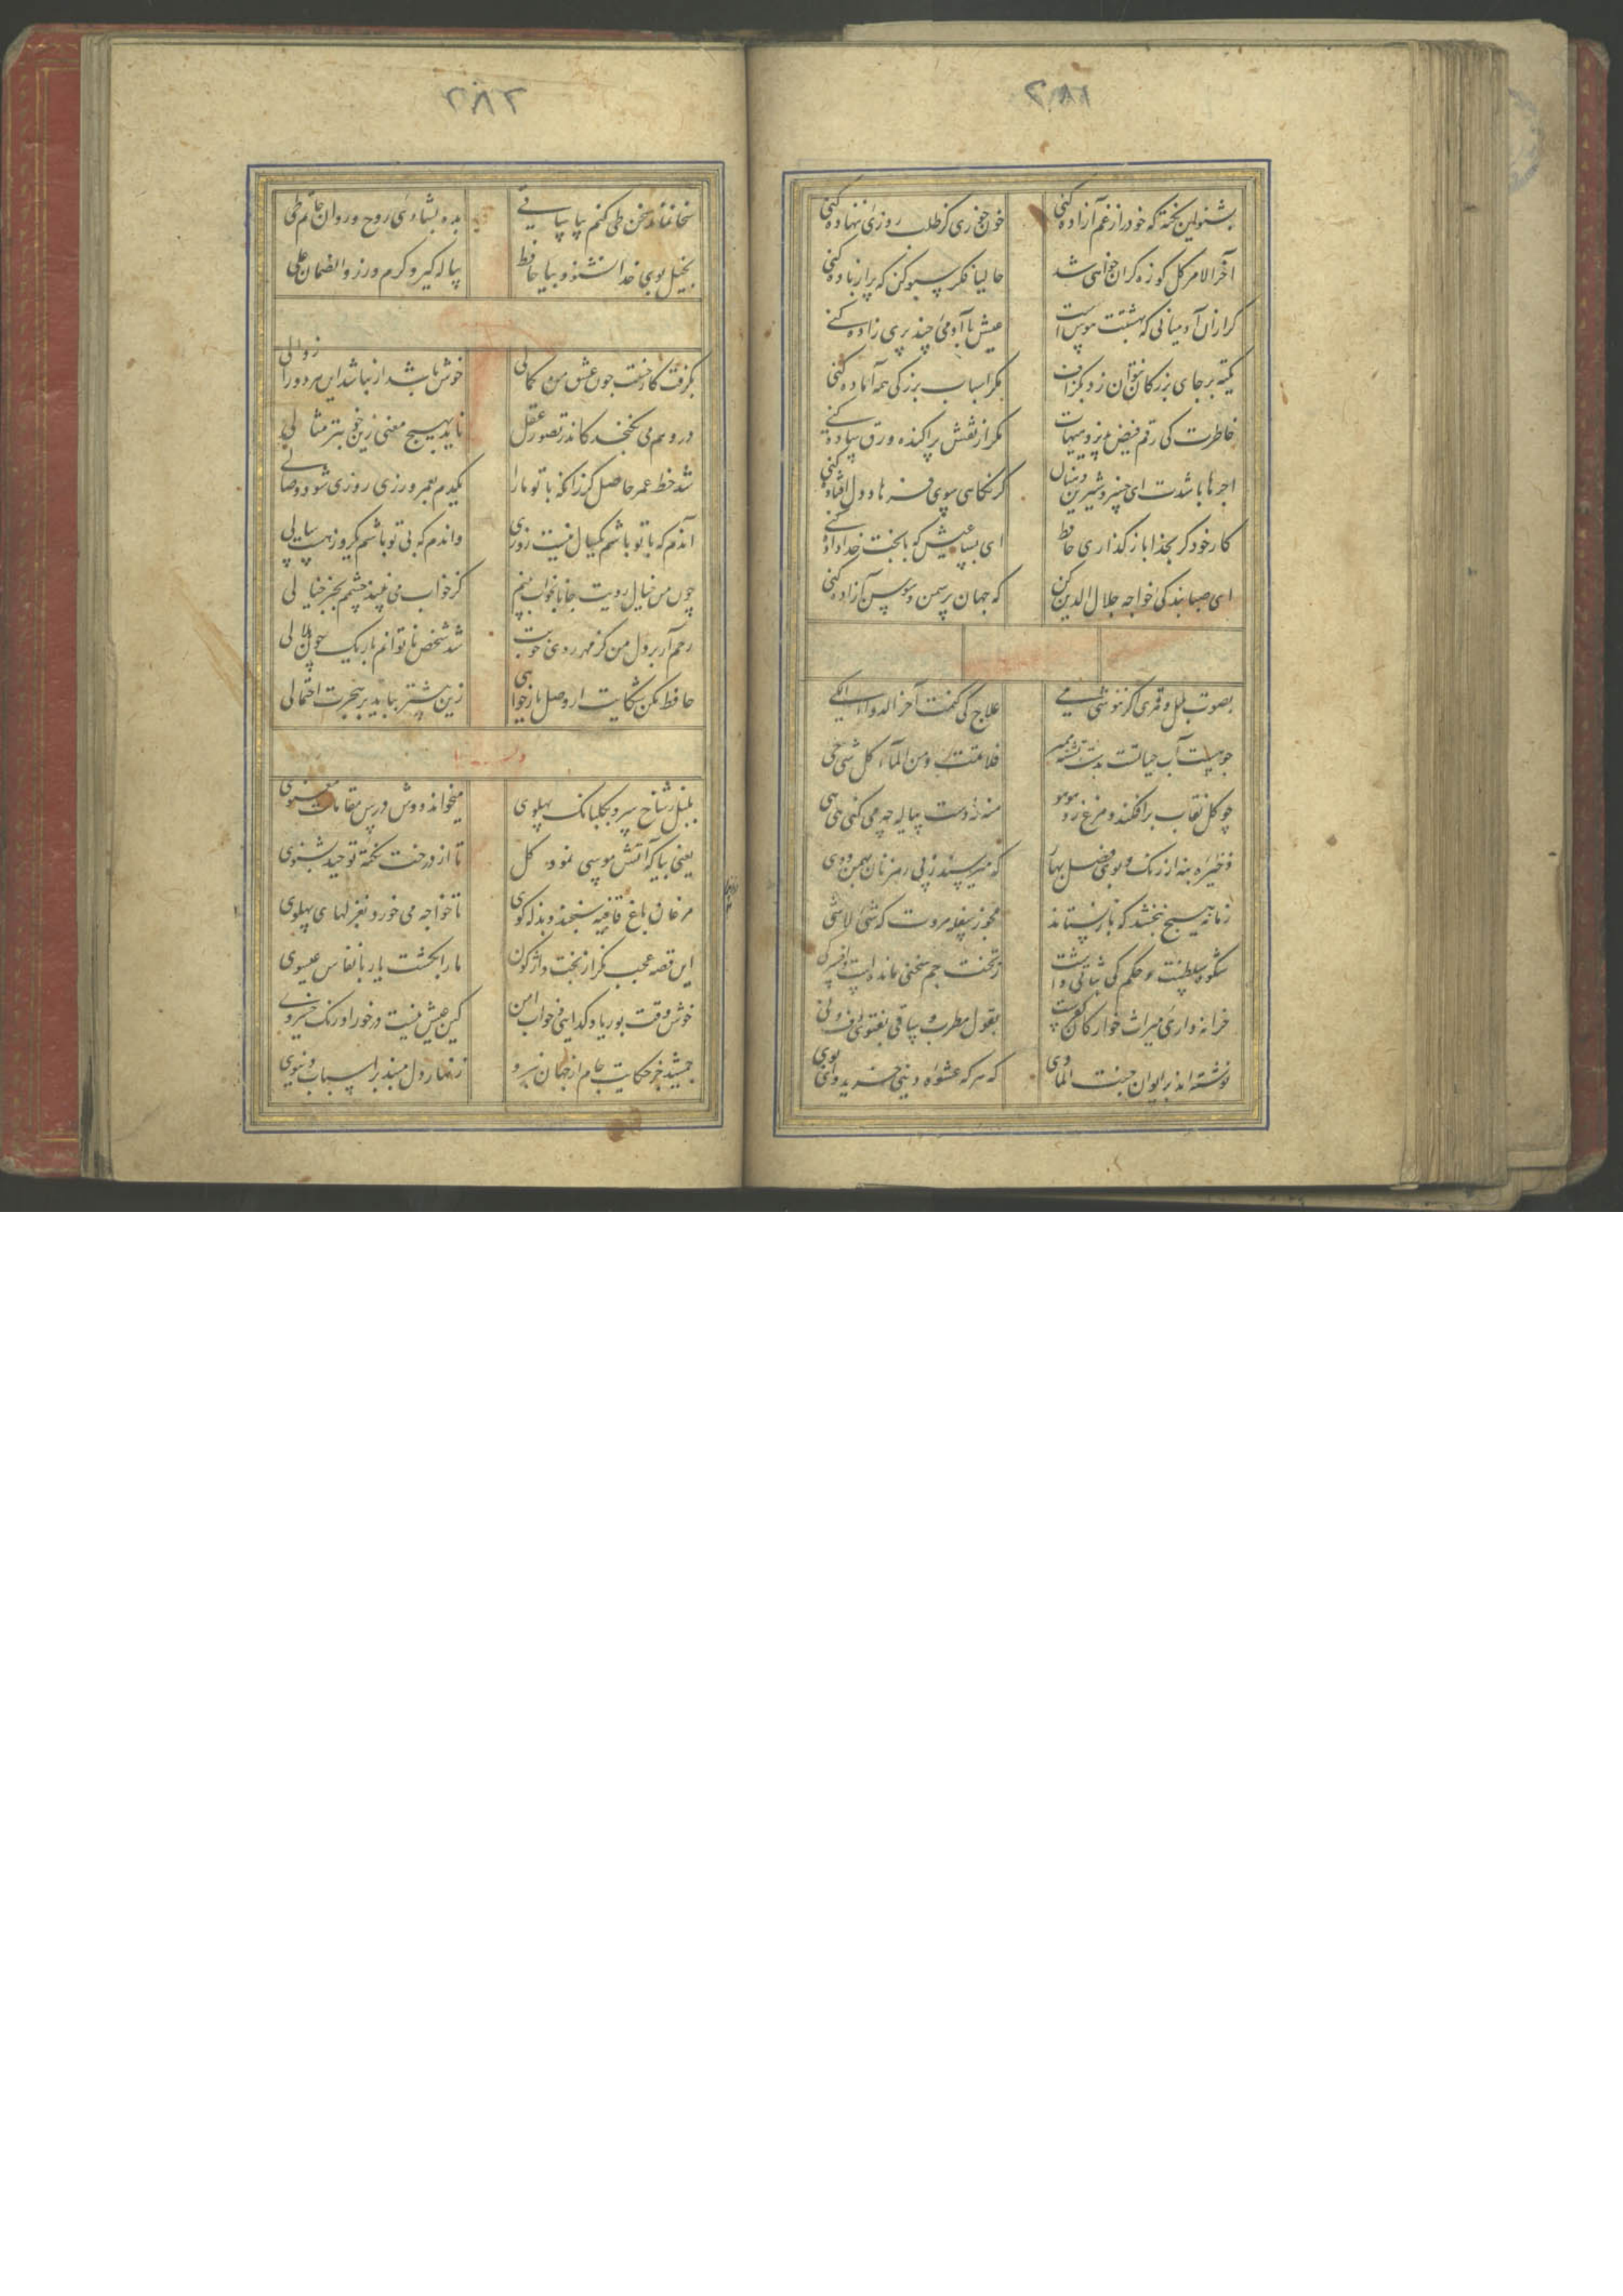 ۲۸۱
بشنو این نکته که خود را ز غم آزاده کنی
خون خوری گر طلب روزی ننهاده کنی
آخر الامر گل کوزه گران خواهی شد
حالیا فکر سبو کن که پر از باده کنی
گر ازان آدمیانی که بهشتت هوس است
عیش با آدمی چند پری زاده کنی
تکیه بر جای بزرگان نتوان زد بگزاف
مگر اسباب بزرگی همه آماده کنی
خاطرت کی رقم فیض پذیرد هیهات
مگر از نقش پراکنده ورق ساده کنی
اجرها باشدت ای خسرو شیرین دهنان
گر نگاهی سوی فرهاد دل افتاده کنی
کار خود گر بخدا باز گذاری حافظ
ای بسا عیش که با بخت خداداده کنی
ای صبا بندگی خواجه جلال الدین کن
که جهان پر سمن و سوسن آزاده کنی
بصوت بلبل و قمری اگر ننوشی می
علاج کی کنمت آخر الدواء الکی
چو هست آب حیاتت بدست تشنه ممیر
فلا تمت و من الماء کل شی حی
چو گل نقاب برافکند و مرغ زد هو هو
منه ز دست پیاله چه می کنی هی هی
ذخیره بنه از رنگ و بوی فصل بهار
که میرسند ز پی رهزنان بهمن و دی
زمانه هیچ نبخشد که باز نستاند
مجو ز سفله مروت که شی لا شی
شکوه سلطنت و حکم کی ثباتی داشت
ز تخت جم سخنی مانده است و افسر کی
خزانه داری میراث خوارگان کفرست
بقول مطرب و ساقی بفتوی دف و نی
نوشته اند بر ایوان جنت الماوی
که هر که عشوه دنیی خرید وای بوی
۲۸۲
سخا نماند سخن طی کنم بیا ساقی
بده بشادی روح و روان حاتم طی
بخیل بوی خدا نشنود بیا حافظ
پیاله گیر و کرم ورز والضمان علی
بگرفت کار حسنت چون عشق من کمالی
خوش باشد ار نباشد این هر دو را زوالی
در وهم می نگنجد کاندر تصور عقل
ناید بهیچ معنی زین خوبتر مثالی
شد حظ عمر حاصل گر زانکه با تو ما را
یکدم بعمر روزی روزی شود وصالی
آندم که با تو باشم یکسال نیست روزی
واندم که بی تو باشم یکروز هست سالی
چون من خیال رویت جانا بخواب بینم
کز خواب می نبیند چشمم بجز خیالی
رحم آر بر دل من کز مهر روی خوبت
شد شخص ناتوانم باریک چون هلالی
حافظ مکن شکایت ار وصل یار خواهی
زین بیشتر بباید بر هجرت احتمالی
بلبل ز شاخ سرو بگلبانگ پهلوی
میخواند دوش درس مقامات معنوی
یعنی بیا که آتش موسی نمود گل
تا از درخت نکته توحید بشنوی
مرغان باغ قافیه سنجند و بذله گوی
تا خواجه می خورد بغزلهای پهلوی
این قصه عجب نگر از بخت واژگون
ما را بکشت یار بانفاس عیسوی
خوش وقت بوریا و گدایی و خواب امن
کین عیش نیست درخور اورنگ خسروی
جمشید جز حکایت جام از جهان نبرد
زنهار دل مبند بر اسباب دنیوی